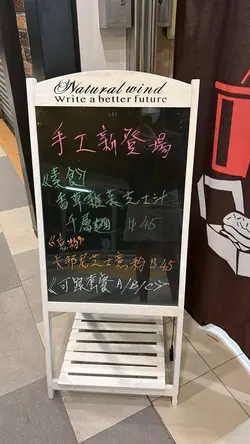 Natural wind
Write a better future
手工新登場
《素食》
香草酸菜芝士汁
千層麵 $45
《意粉》
卡邦尼芝士意粉 $45
《可跟套餐A/B/C》